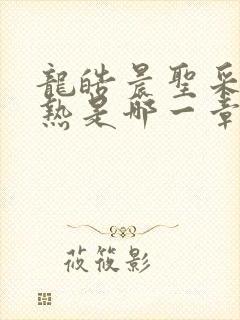 龍皓晨聖采
熱是哪一章
莜筱影